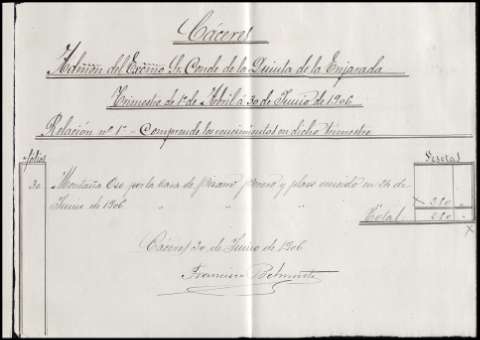 Cáceres
Admon del Excmo Sr. Conde de la Quinta de la Enjarada
Trimestre de 1º de Abril á 30 de Junio de 1906
Relación nº 1º - Comprende los vencimientos en dicho trimestre
Folios
Pesetas
30 Montaña Oso por la casa de Pizarro y plazo vencido en 24 de
Junio de 1906 " " "
Total
Cáceres 30 de Junio de 1906
Francisco Belmonte